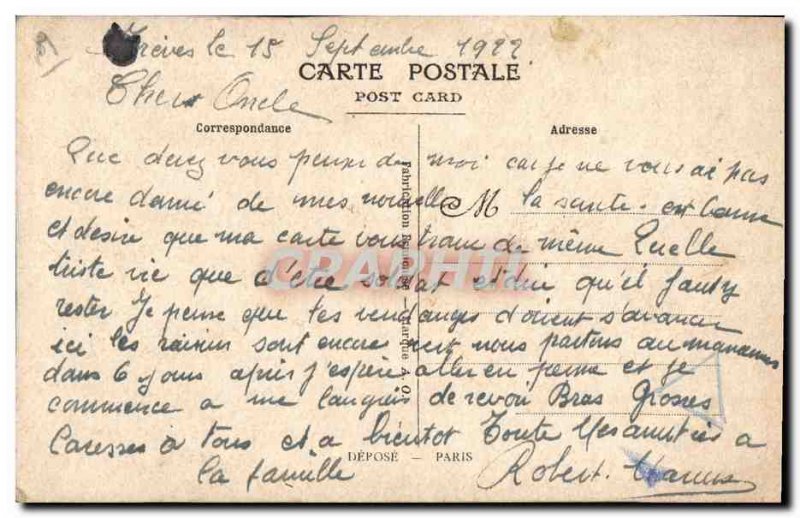 Trèves le 15 Septembre 1922
CARTE POSTALE
POST CARD
Cher Oncle
Correspondance
Adresse
Que devez vous penser de moi car je ne vous ai pas
encore donné de mes nouvelle M la santé est bonne
et désire que ma carte vous trouve de même Quelle
triste vie que d'être soldat et dire qu'il faut y
rester Je pense que tes vendanges doivent s'avancer
ici les raisins sont encore vert nous partons au manœuvres
dans 6 jours après j'espère aller en perme et je
commence a me languir de revoir Bras Grosses
Caresses à Tous et a bientot Toute Mes amitiés a
la famille
Robert
DÉPOSÉ — PARIS
Fabrication Française — Marque A. O.